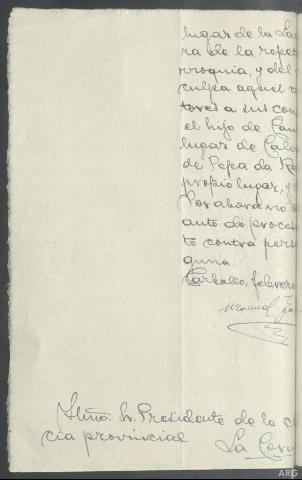 lugar de la La
ra de la repet
rroquia, y del
culpa aquel
tores a sus con
el hijo de
lugar de
de Pepa da
propio lugar, y
Por ahora no
auto de proce
to contra per
guna.
Carballo, febrero
Manuel
Iltmo. Sr. Presidente de la
cia provincial
La Coru
ARG